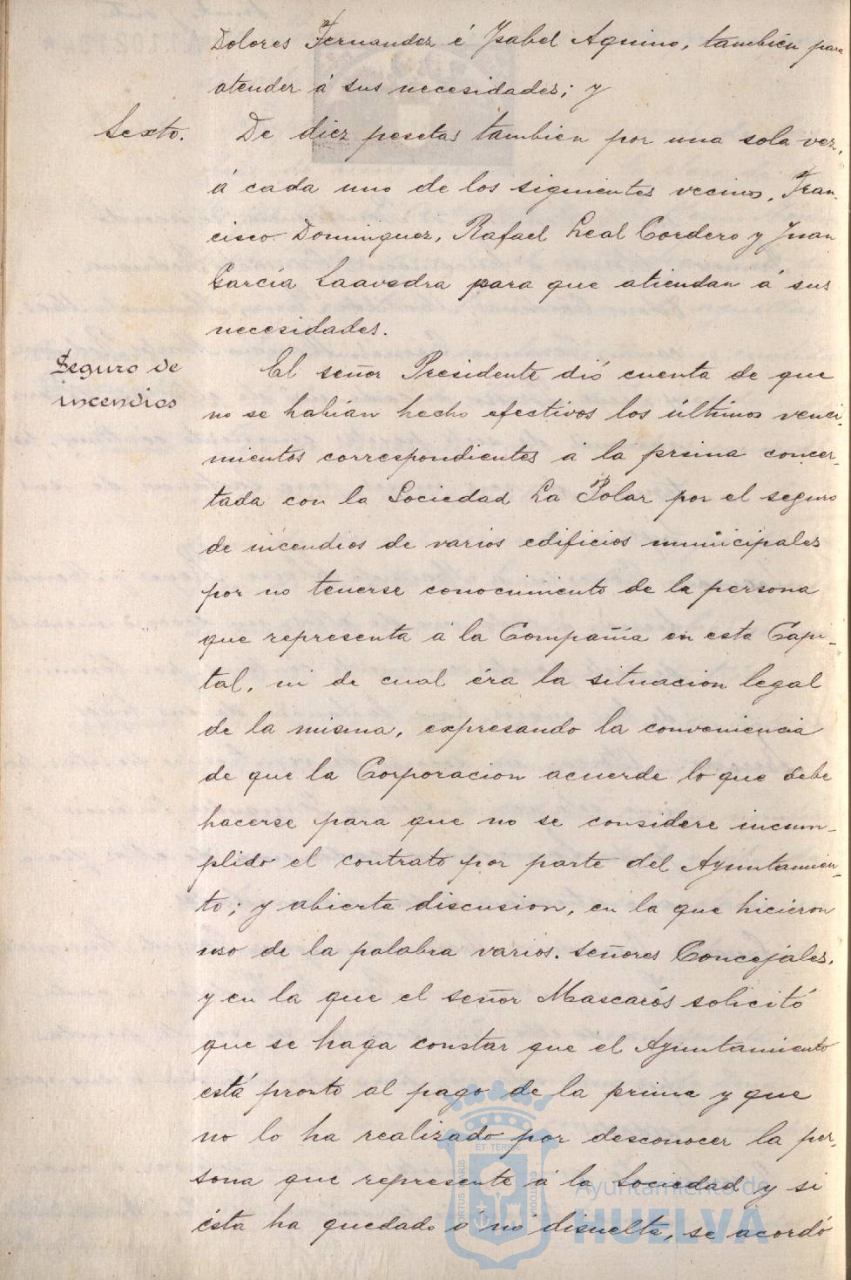 Dolores Fernandez é Ysabel Aquino, también para
atender á sus necesidades; y
Sexto. De diez pesetas tambien por una sola vez,
á cada uno de los siguientes vecinos, Fran-
cisco Dominguez, Rafael Leal Cordero y Juan
García Saavedra para que atiendan á sus
necesidades.
Seguro de
incendios
El señor Presidente dió cuenta de que
no se habían hecho efectivos los últimos venci-
mientos correspondientes á la prima concer-
tada con la Sociedad La Polar por el seguro
de incendios de varios edificios municipales
por no tenerse conocimiento de la persona
que representa á la Compañía en esta Capi-
tal, ni de cual éra la situacion legal
de la misma, expresando la conveniencia
de que la Corporacion acuerde lo que debe
hacerse para que no se considere incum-
plido el contrato por parte del Ayuntamien-
to; y abierta discusion, en la que hicieron
uso de la palabra varios señores Concejales,
y en la que el señor Mascarós solicitó
que se haga constar que el Ayuntamiento
está pronto al pago de la prima y que
no lo ha realizado por desconocer la per-
sona que represente á la Sociedad y si
ésta ha quedado ó nó disuelta, se acordó
Ayuntamiento de
HUELVA